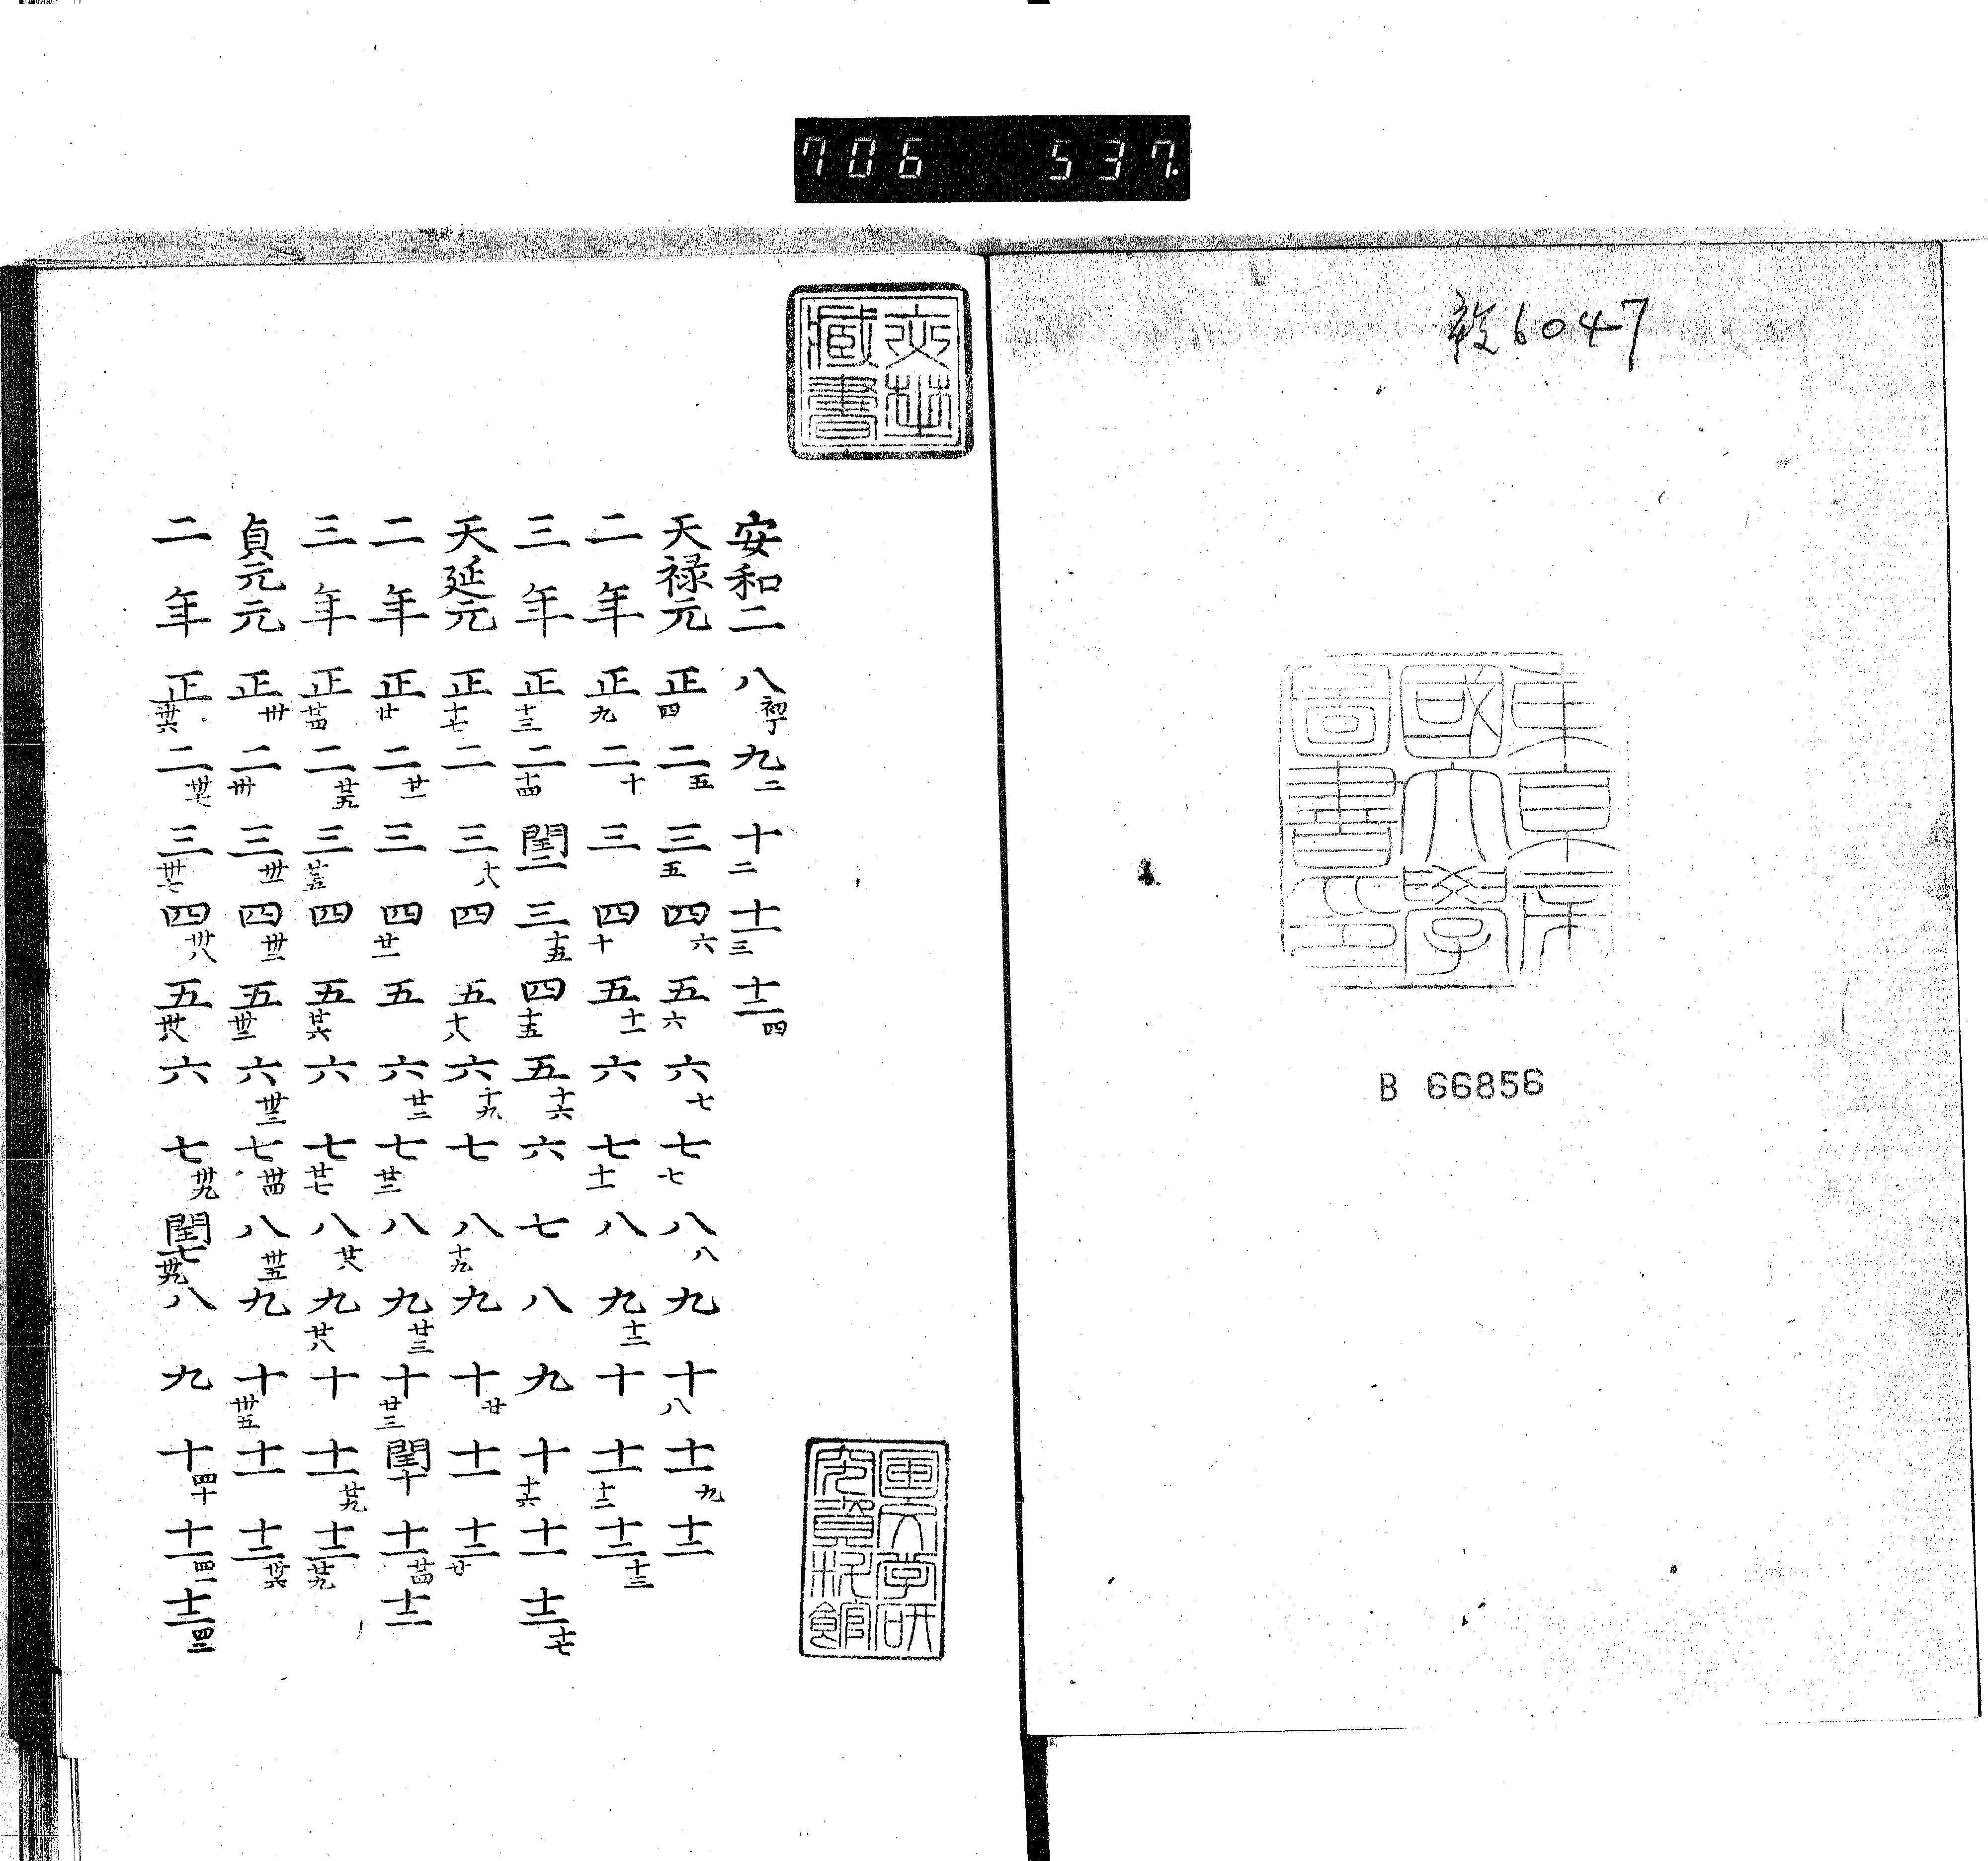 706 537
6047
東京帝國大學圖書印
B 66856
安和二 八初丁 九二 十二 十一三 十二四
天禄元 正四 二五 三五 四六 五六 六七 七七 八八 九 十八 十一九 十二
二年 正九 二十 三 四十 五十一 六 七十一 八 九十二 十 十一十二 十二十三
三年 正十三 二十四 閏二 三十五 四十五 五十六 六 七 八 九 十十六 十一 十二十七
天延元 正十七 二 三十八 四 五十八 六十九 七 八十九 九 十廿 十一 十二廿
二年 正廿 二廿一 三 四廿一 五 六廿二 七廿二 八 九廿三 十廿三 閏十 十一廿四 十二
三年 正廿四 二廿五 三廿五 四 五廿六 六 七廿七 八廿八 九廿八 十 十一廿九 十二廿九
貞元元 正卅 二卅 三卅一 四卅二 五卅二 六卅三 七卅四 八卅五 九 十卅五 十一 十二卅六
二年 正卅六 二卅七 三卅七 四卅八 五卅八 六 七卅九 閏七卅九 八 九 十四十 十一四一 十二四二
国文学研究資料館